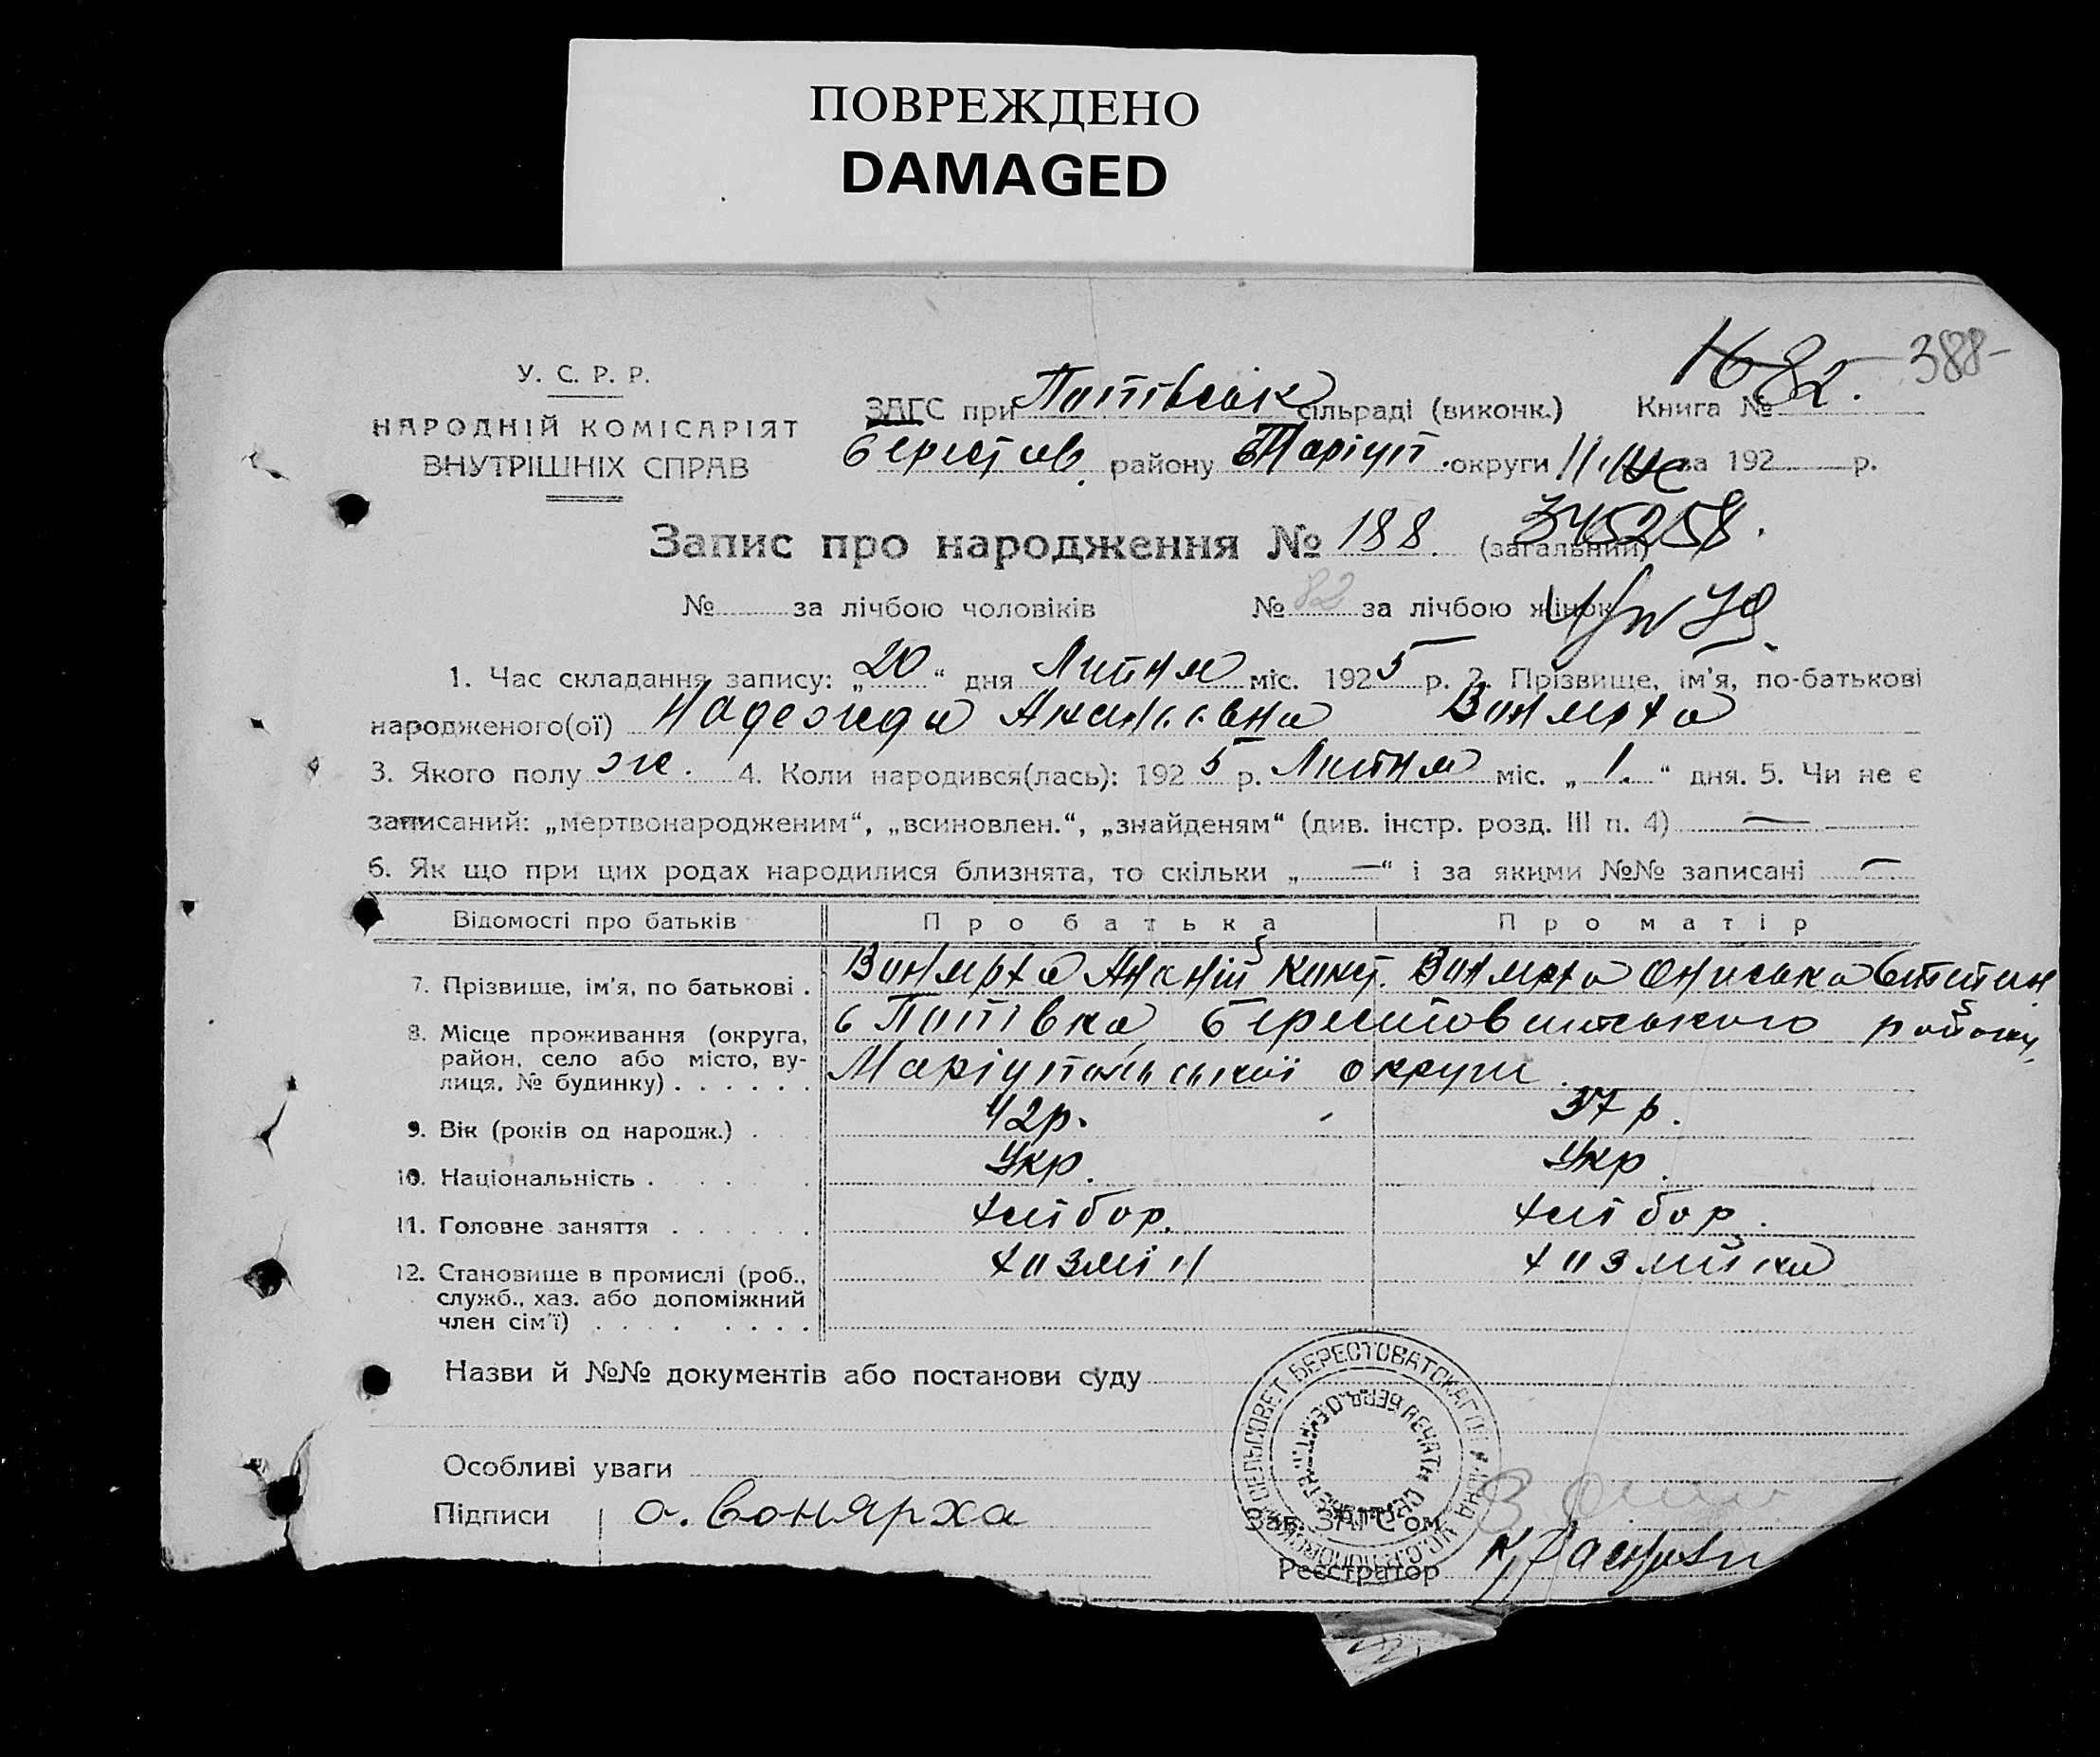 ПОВРЕЖДЕНО
DAMAGED
1682. 388-
У. С. Р. Р.
НАРОДНІЙ КОМІСАРІЯТ
ВНУТРІШНІХ СПРАВ
ЗАГС при сільраді (виконк.) Книга №
Берестов. району Маріуп. округи за 192 р.
Запис про народження № 188. (загальний) 345258.
№ за лічбою чоловіків № 82 за лічбою жінок
1. Час складання запису: „20“ дня Липня міс. 1925 р. 2. Прізвище, ім'я, по-батькові
народженого(ої) Надежда Вонярха
3. Якого полу ж. 4. Коли народився(лась): 1925 р. Липня міс. „1.“ дня. 5. Чи не є
записаний: „мертвонародженим“, „всиновлен.“, „знайденям“ (див. інстр. розд. III п. 4) —
6. Як що при цих родах народилися близнята, то скільки „—“ і за якими №№ записані —
Відомості про батьків Про батька Про матір
7. Прізвище, ім'я, по батькові . Вонярха Ананій Вонярха Ониська
8. Місце проживання (округа, район, село або місто, вулиця, № будинку) . . . . . . Берестоватського району,
Маріупольської округи.
9. Вік (років од народж.) . 42р. 37р.
10. Національність . Укр. Укр.
11. Головне заняття . хлібор. хлібор.
12. Становище в промислі (роб., служб., хаз. або допоміжний член сім'ї) хозяйка
Назви й №№ документів або постанови суду
Особливі уваги
Підписи а. Вонярха
Зав. ЗАГС'ом
Реєстратор
СЕЛЬСОВЕТ БЕРЕСТОВАТСКАГО